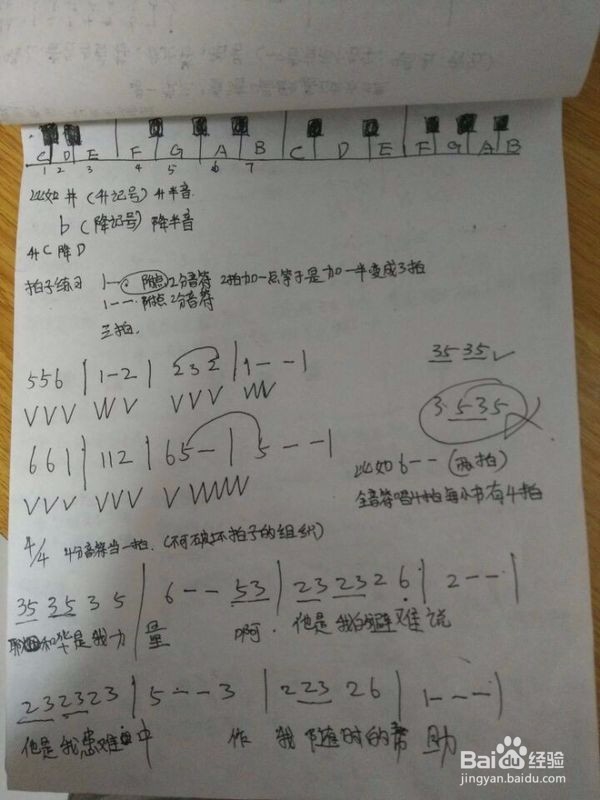 C D E F G A B C D E F G A B
1 2 3 4 5 6 7
比如 # (升记号) 升半音
b (降记号) 降半音
升C 降D
拍子练习 1—· 附点2分音符 2拍加一点等于是加一半变成3拍
1-- 附点2分音符
三拍.
556 | 1-2 | 232 | 1--|
35 35 ✓
VVV VV V VVV VVV
3·535
661 | 112 | 65-| 5--|
比如6-- (两拍)
VVV VVV V VVVVV
全音符唱4拍每小节有4拍
4/4 4分音符当一拍. (不可破坏拍子的组织)
35 35 3 5 | 6-- 53 | 23 23 2 6 | 2--|
耶和华是我力量 啊. 他是我的避难说
23 23 23 | 5--3 | 2 23 26 | 1---|
他是我患难中 作 我随时的帮助
Baidu经验
jingyan.baidu.com